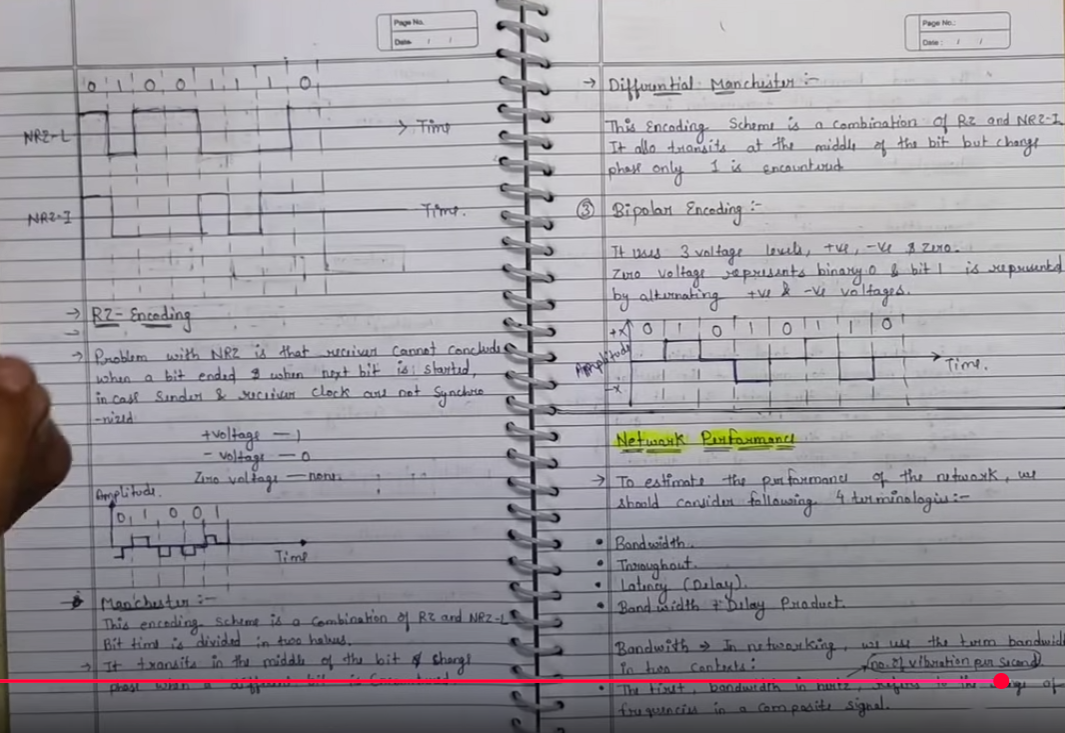 Page No.
Date / /
0 1 0 0 1 1 1 0
NRZ-L
Time
NRZ-I
Time.
→ RZ- Encoding
→ Problem with NRZ is that receiver cannot conclude
when a bit ended & when next bit is started,
in case Sender & receiver clock are not Synchro
-nized.
+voltage — 1
- voltage — 0
Zero voltage — none.
Amplitude.
0 1 0 0 1
Time
Manchester :-
This encoding scheme is a combination of RZ and NRZ-L
Bit time is divided in two halves.
→ It transits in the middle of the bit & change
phase when a different bit is encountered.
Page No.:
Date : / /
→ Differential Manchester :-
This Encoding Scheme is a combination of RZ and NRZ-I.
It also transits at the middle of the bit but change
phase only 1 is encountered
③ Bipolar Encoding :-
It uses 3 voltage levels, +ve, -ve & zero.
Zero voltage represents binary 0 & bit 1 is represented
by alternating +ve & -ve voltages.
+x 0 1 0 1 0 1 1 0
Amplitude
Time.
-x
Network Performance
→ To estimate the performance of the network, we
should consider following 4 terminologies:-
• Bandwidth.
• Throughout.
• Latency (Delay).
• Bandwidth + Delay Product.
Bandwith → In networking, we use the term bandwid
in two contexts:
(no. of vibration per second)
• The first, bandwidth in hertz, refers to the range of
frequencies in a composite signal.